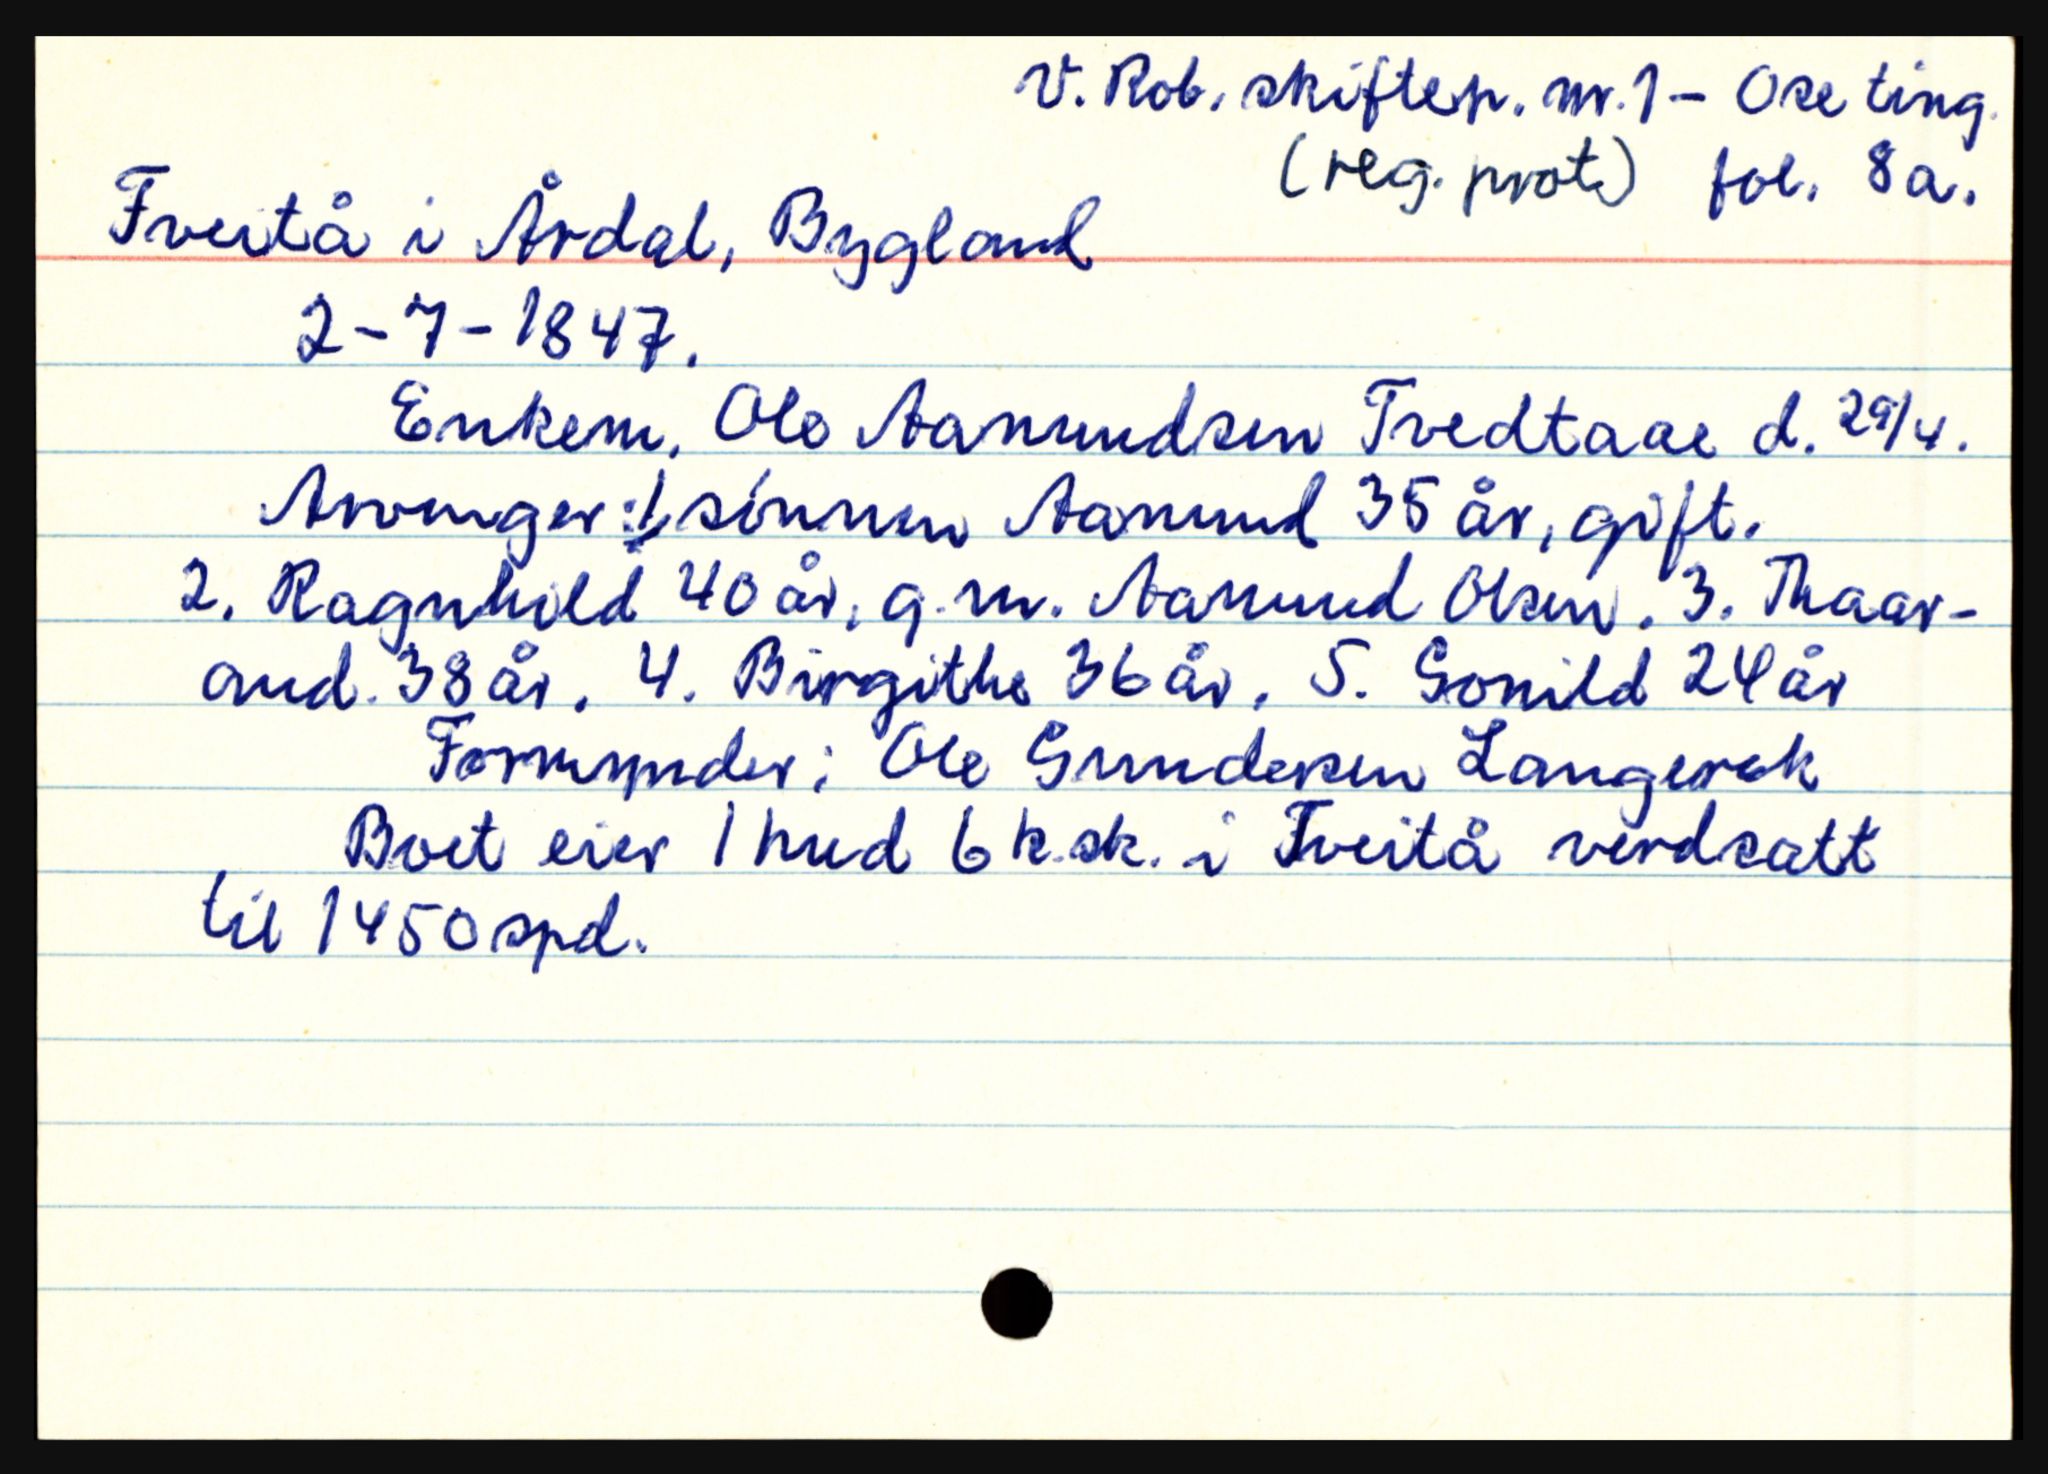 V. Rob. skiftep. nr. 1 - Ose ting.
(reg. prot.) fol. 8a.
Tveitå i Årdal, Bygland
2-7-1847.
Enkem. Ole Aamundsen Tvedtaae d. 29/4.
Arvinger: 1 sønnen Aamund 35 år, gift.
2. Ragnhild 40 år, g. m. Aamund Olsen. 3. Thaar-
and. 38 år. 4. Birgithe 36 år. 5. Gonild 24 år
Formynder: Ole Gundersen Langerak
Boet eier 1 hud 6 k.sk. i Tveitå verdsatt
til 1450 spd.